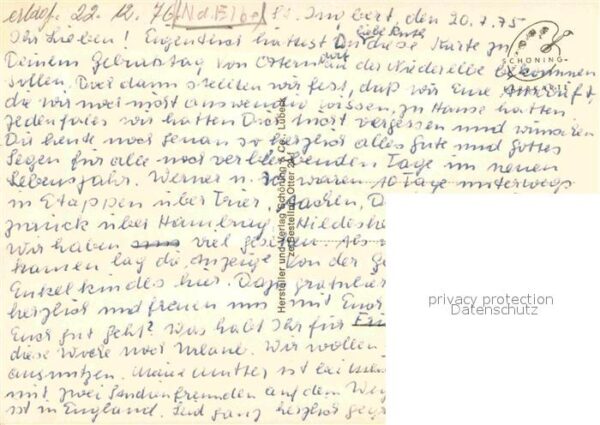 erledg. 22. 12. 76 Nd. Elbe St. Ingbert, den 20. 7. 75
Ihr Lieben! Eigentlich hattest Du, liebe Ruth, diese Karte zu
Deinem Geburtstag von Ostern der Niederelbe bekommen
sollen. Doch dann stellten wir fest, daß wir Eure Anschrift,
die wir noch nicht auswendig wissen, zu Hause hatten.
Jedenfalls wir hatten Dich nicht vergessen und wünschen
Dir heute noch genau so herzlich alles Gute und Gottes
Segen für alle noch verbleibenden Tage im neuen
Lebensjahr. Werner u. ich waren 10 Tage unterwegs
in Etappen über Trier, Aachen, D
zurück über Hamburg, Hildeshe
Wir haben viel gesehen. Als w
kamen lag die Anzeige von der Ge
Enkelkindes hier. Dazu gratulier
herzlich und freuen uns mit Euch
Euch gut geht? Was habt Ihr für
diese Woche noch Urlaub. Wir wollen
ausnutzen. Meine Mutter ist bei
mit zwei Studienfreunden auf dem Weg
ist in England. Seid ganz herzlich gegr
SCHÖNING
Hersteller und Verlag Schöning & Co., Lübeck
privacy protection
Datenschutz